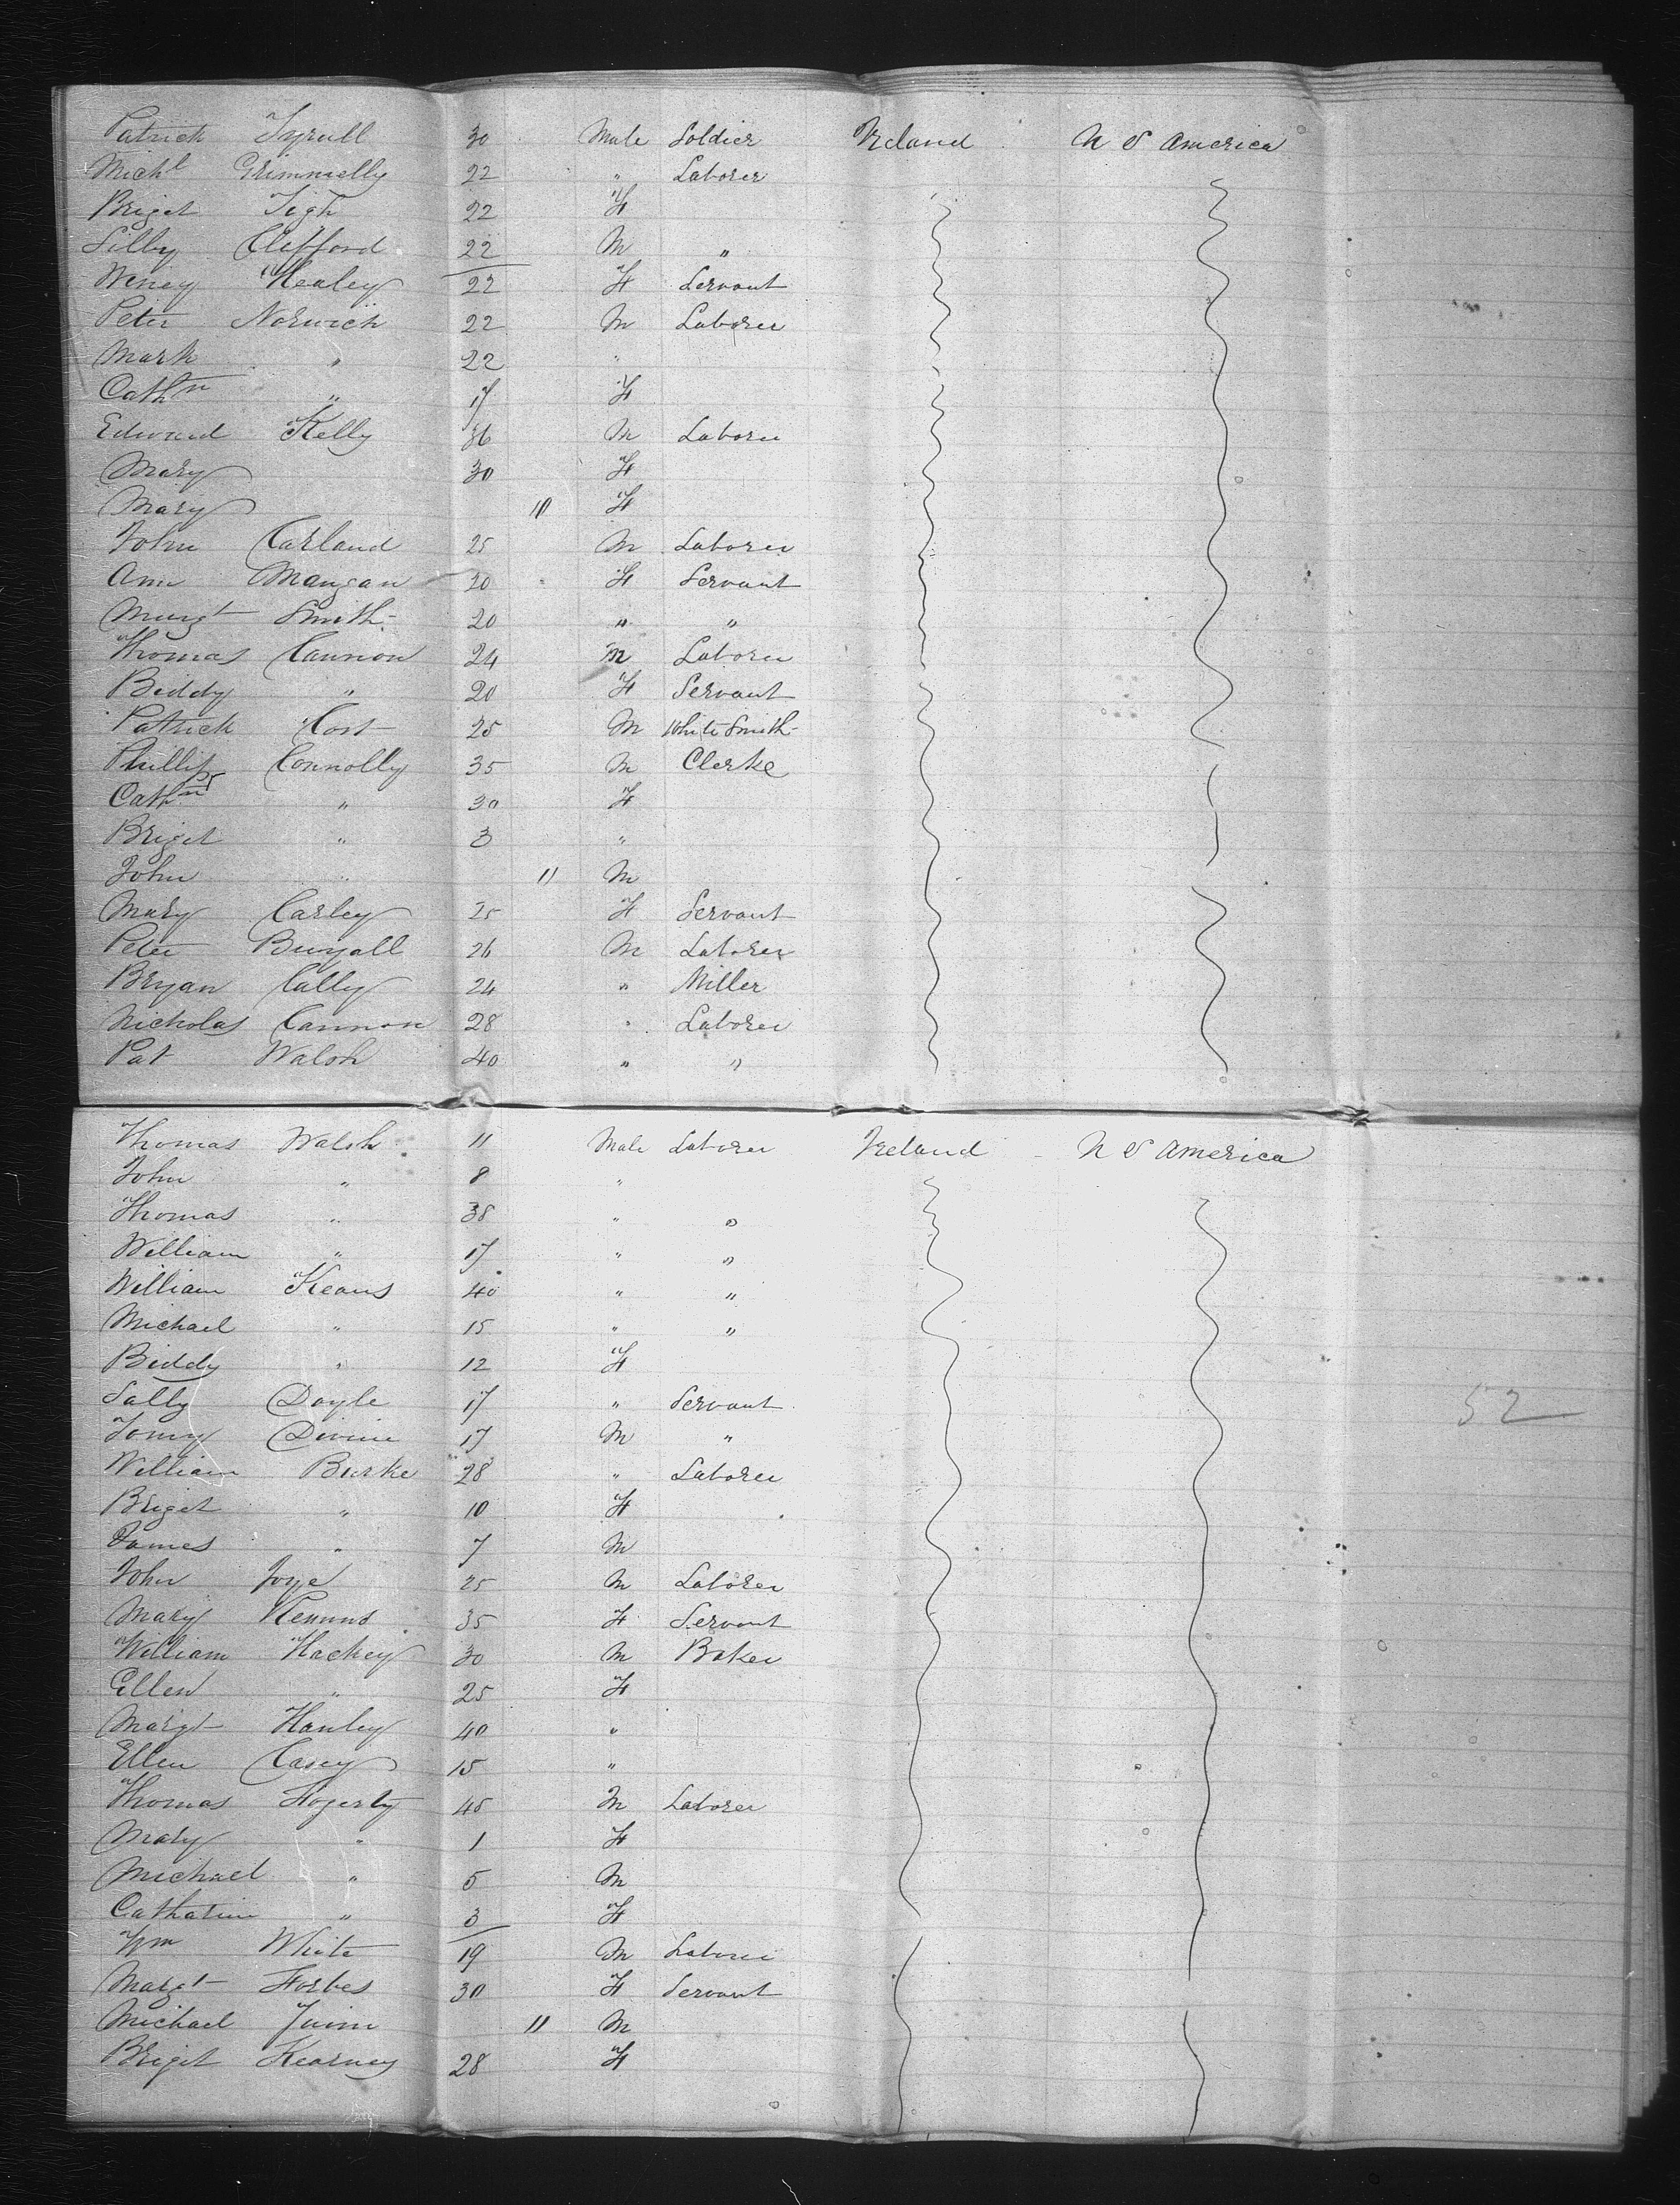 Patrick Tyrull 30 Male Soldier Ireland U S America
Michl Grimnelly 22 " Laborer
Briget Tigh 22 F
Silby Clifford 22 M "
Winey Healey 22 F Servant
Peter Norwich 22 M Laborer
Mark " 22 "
Cathn " 17 F
Edward Kelly 36 M Laborer
Mary 30 F
Mary 10 F
John Carland 25 M Laborer
Ann Mangan 20 F Servant
Margt Smith 20 " "
Thomas Cannon 24 M Laborer
Biddy " 20 F Servant
Patrick Cost 25 M White Smith
Phillip Connolly 35 M Clerke
Cathn " 30 F
Briget " 3 "
John " 11 M
Mary Carley 25 F Servant
Peter 26 M Laborer
Bryan Cally 24 " Miller
Nicholas Cannon 28 " Laborer
Pat Walsh 40 " "
Thomas Walsh 11 Male Laborer Ireland U S America
John " 8 "
Thomas " 38 " "
William " 17 " "
William Keans 40 " "
Michael " 15 " "
Biddy " 12 F
Sally Doyle 17 " Servant
52
Tomy Divine 17 M "
William Burke 28 " Laborer
Briget " 10 F
James " 7 M
John Joye 25 M Laborer
Mary 35 F Servant
William Hackey 30 M Baker
Ellen " 25 F
Margt Hanley 40 "
Ellen Casey 15 "
Thomas Hogerty 45 M Laborer
Mary " 1 F
Michael " 5 M
Catharine " 3 F
Wm White 19 M Laborer
Margt Forbes 30 F Servant
Michael Quinn 11 M
Briget Kearney 28 F